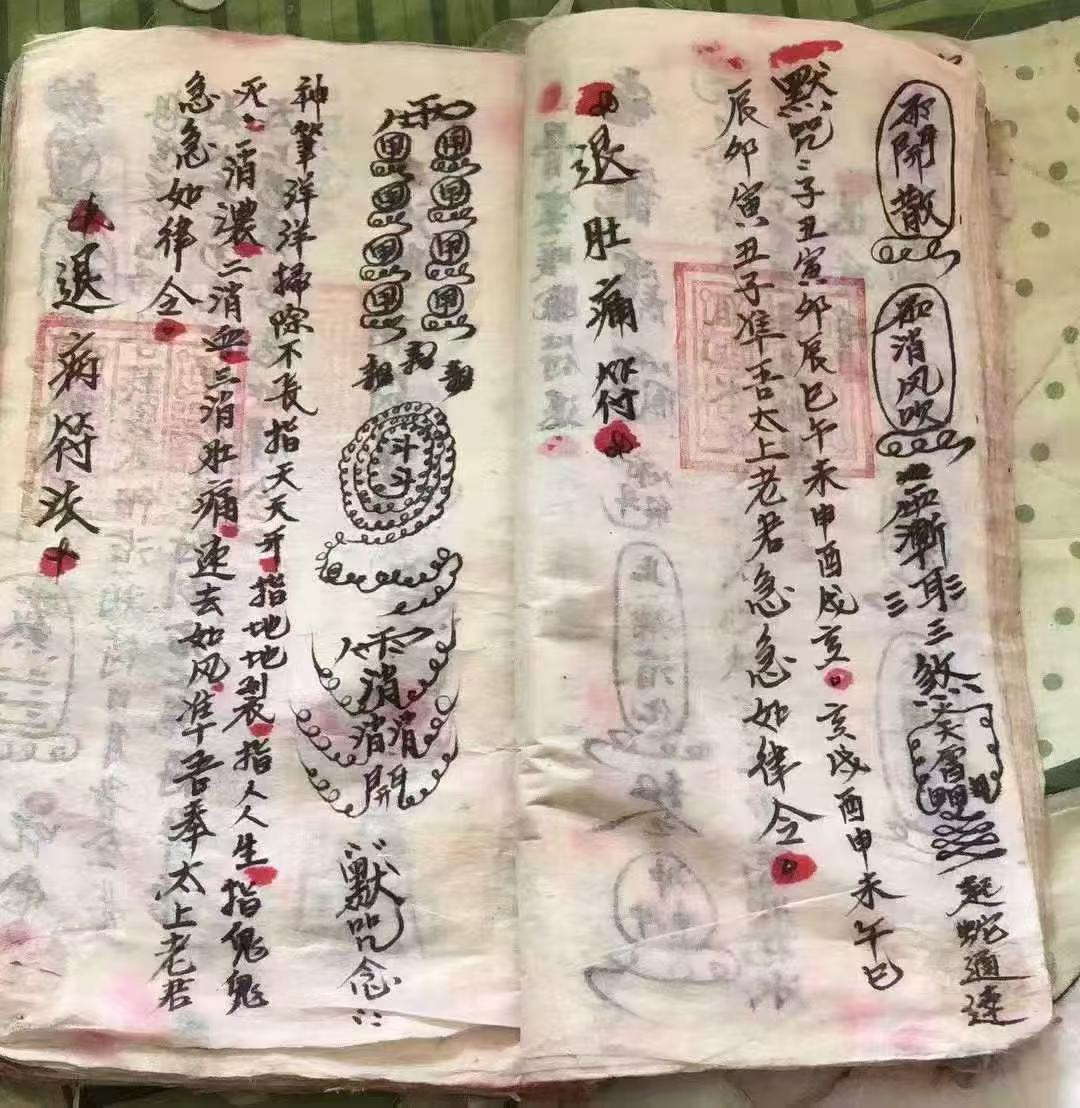 邪開散
邪消风吹
三煞
起蛇通達
默咒：子丑寅卯辰巳午未申酉戌亥。亥戌酉申未午巳
辰卯寅丑子准吾太上老君急急如律令。
退肚痛符
斗斗
消
消消
開
默咒念：
神筆洋洋掃除不長指天天开指地地裂指人人生指鬼鬼
灭一消濃二消血三消肚痛速去如风准吾奉太上老君
急急如律令。
退病符法